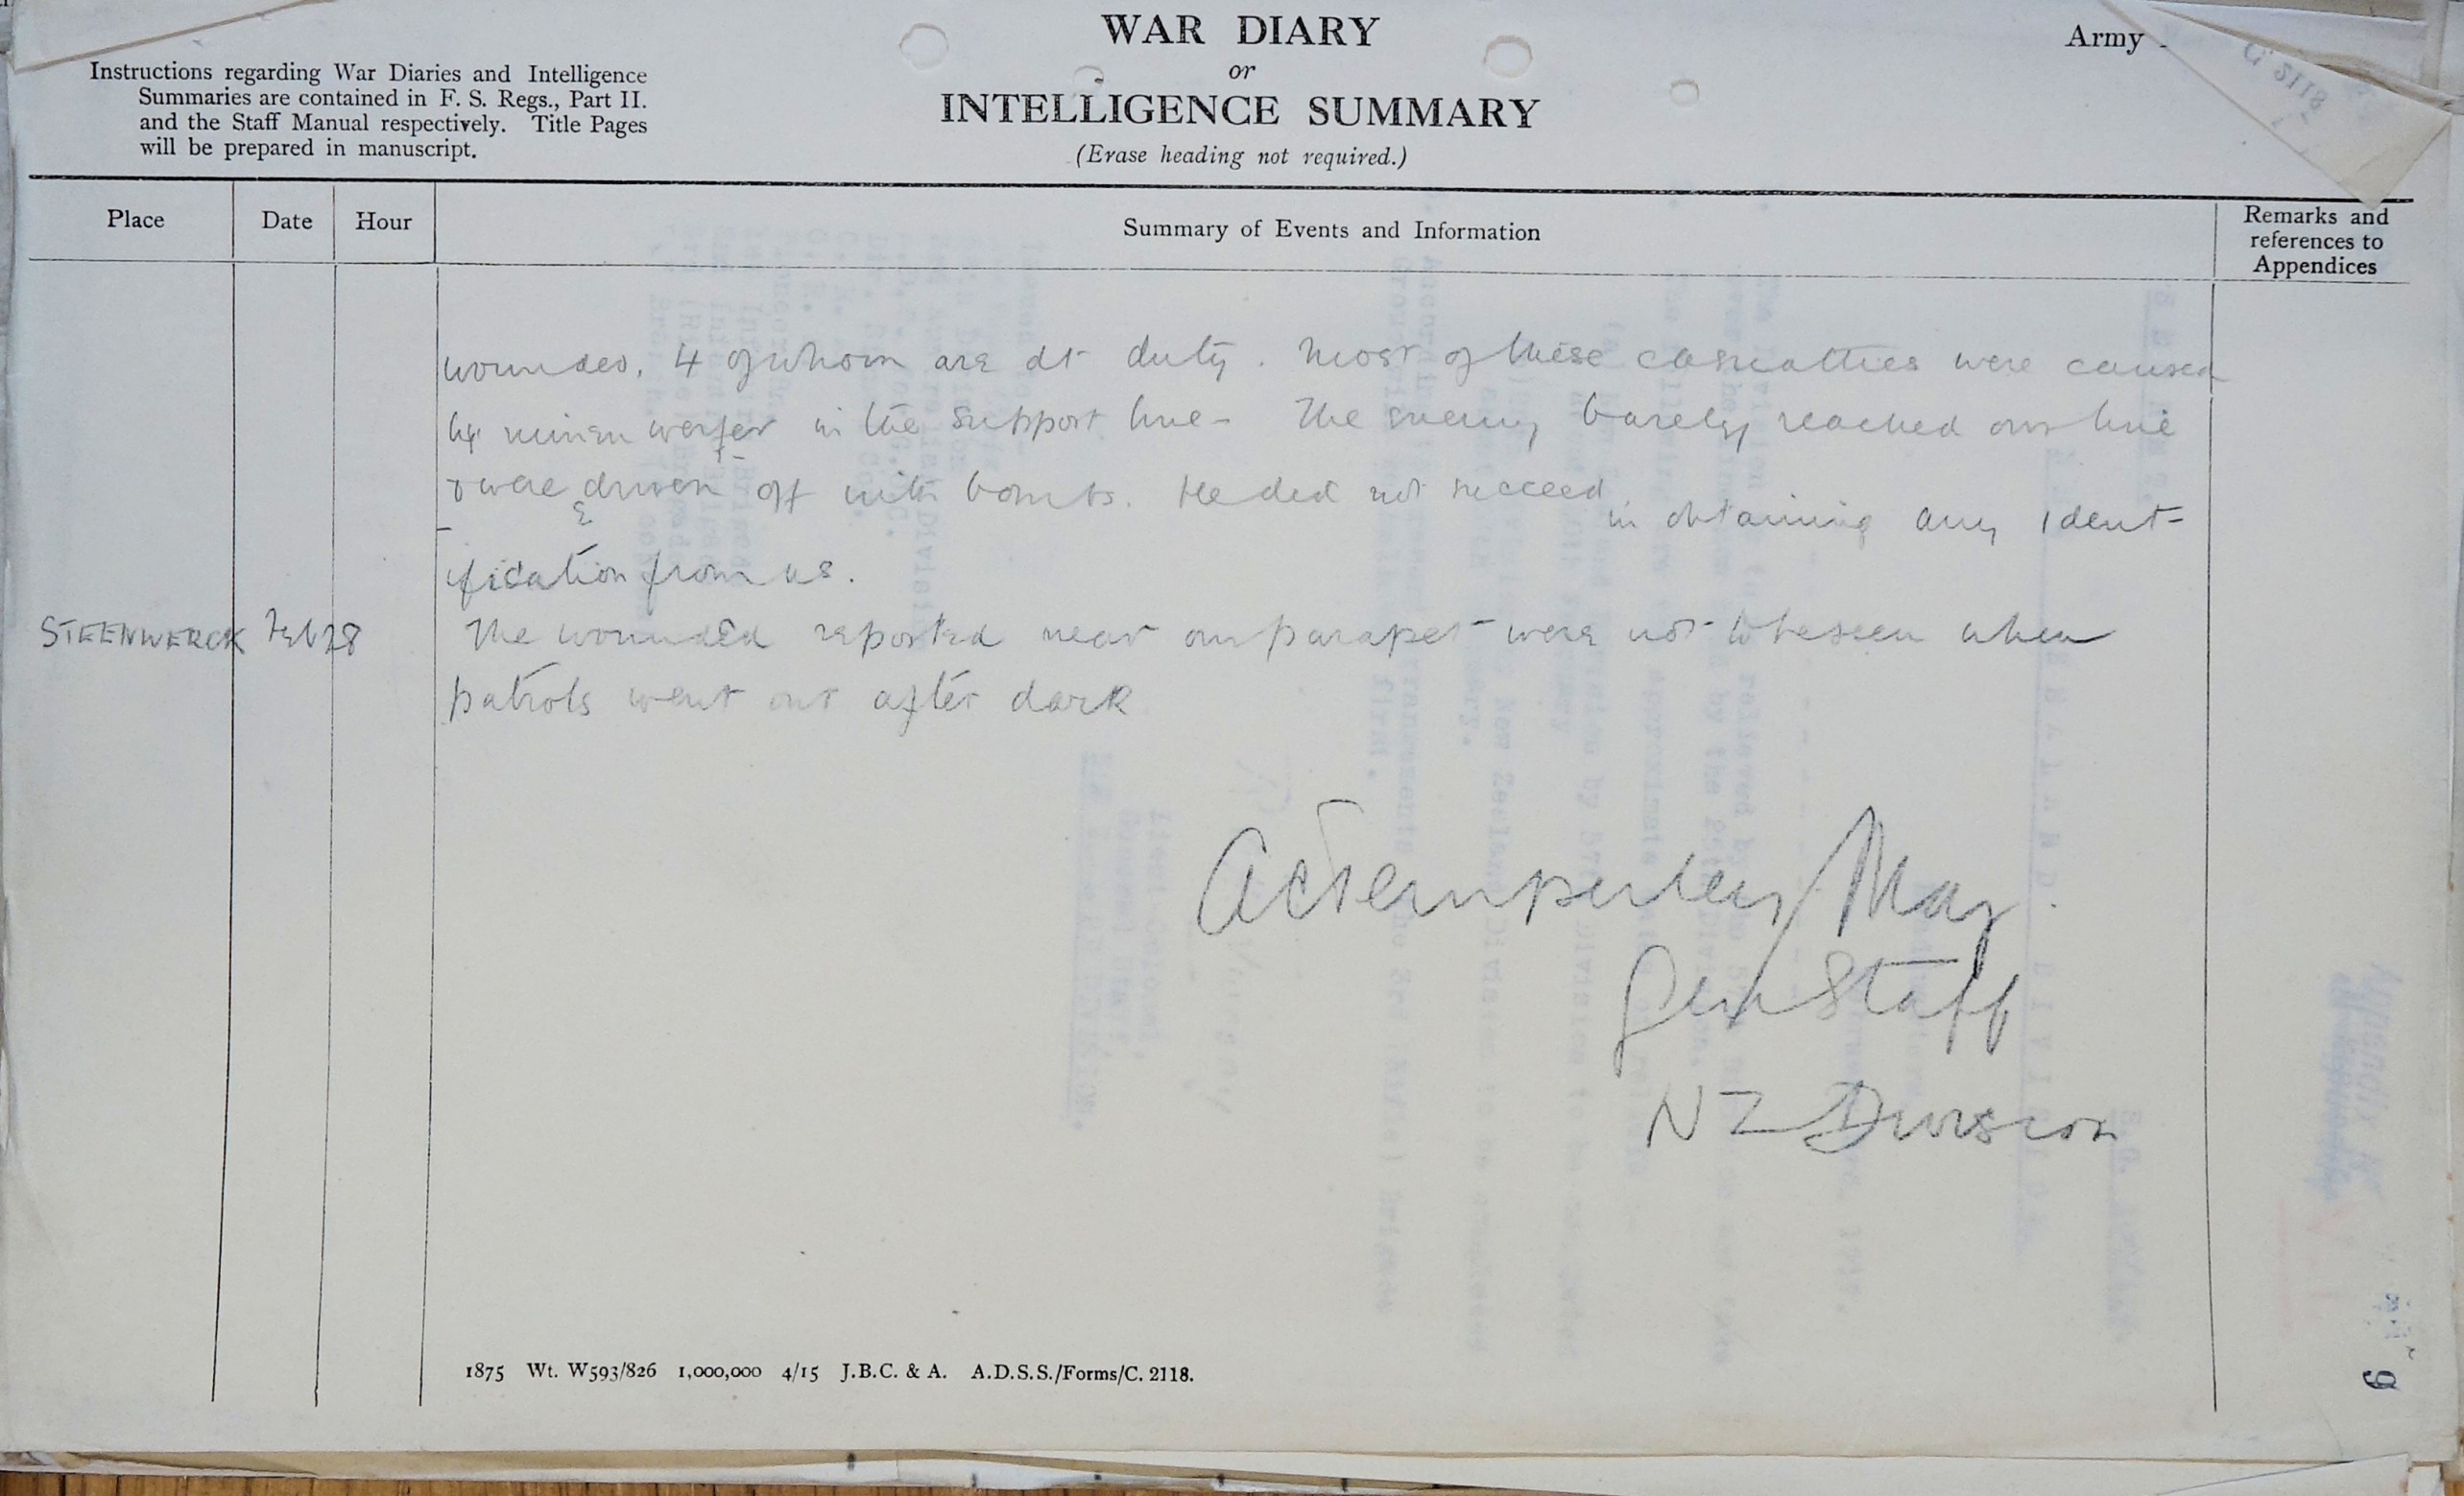 WAR DIARY
or
INTELLIGENCE SUMMARY
(Erase heading not required.)
Army
Instructions regarding War Diaries and Intelligence
Summaries are contained in F. S. Regs., Part II.
and the Staff Manual respectively. Title Pages
will be prepared in manuscript.
C. 2118
Place
Date
Hour
Summary of Events and Information
Remarks and
references to
Appendices
wounded, 4 of whom are at duty. Most of these casualties were caused
by minenwerfer in the support line - The enemy barely reached our line
& were driven off with bombs. He did not succeed in obtaining any ident-
ification from us.
STEENWERCK Feb 28 The wounded reported near our parapet were not to be seen when
patrols went out after dark
ACTemperley Maj.
Gen Staff
NZ Division
1875 Wt. W593/826 1,000,000 4/15 J.B.C. & A. A.D.S.S./Forms/C. 2118.